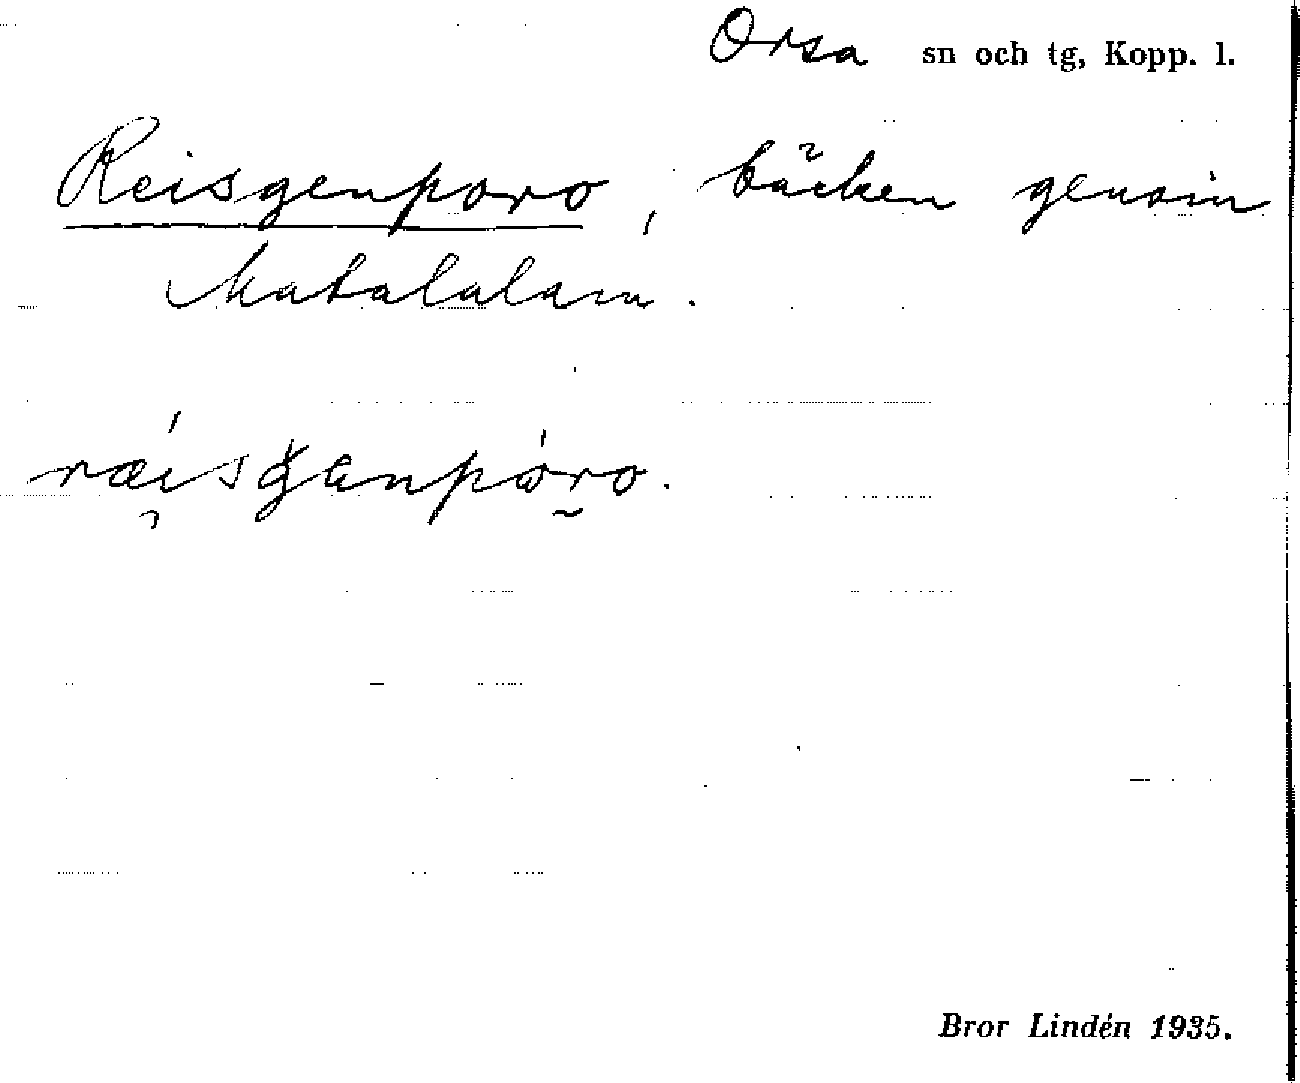 Orsa sn och tg, Kopp. l.
Reisgenporo, bäcken genom
Matalalam.
ræisganpòro.
Bror Lindén 1935.